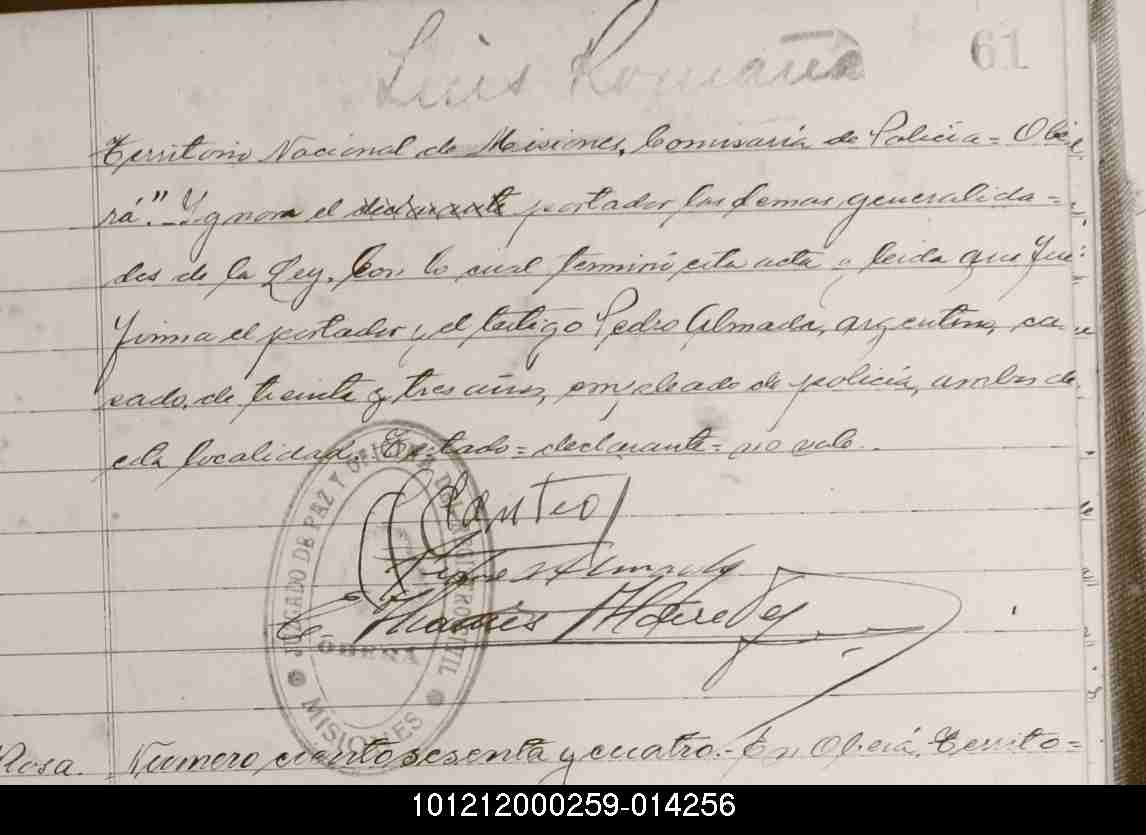 Luis Romaña
61
Territorio Nacional de Misiones, Comisaría de Policía = Obe-
rá". - Ygnora el declarante portador las demas generalida=
des de la Ley. Con lo cual terminó esta acta y leida que fué
firma el portador y el testigo Pedro Almada, argentino, ca-
sado, de treinta y tres años, empleado de policía, ambos de
esta localidad. Testado = declarante = no vale.
JUZGADO DE PAZ Y DEL CIVIL
OBERA
MISIONES
Rosa. Numero ciento sesenta y cuatro. - En Oberá, Territo=
101212000259-014256